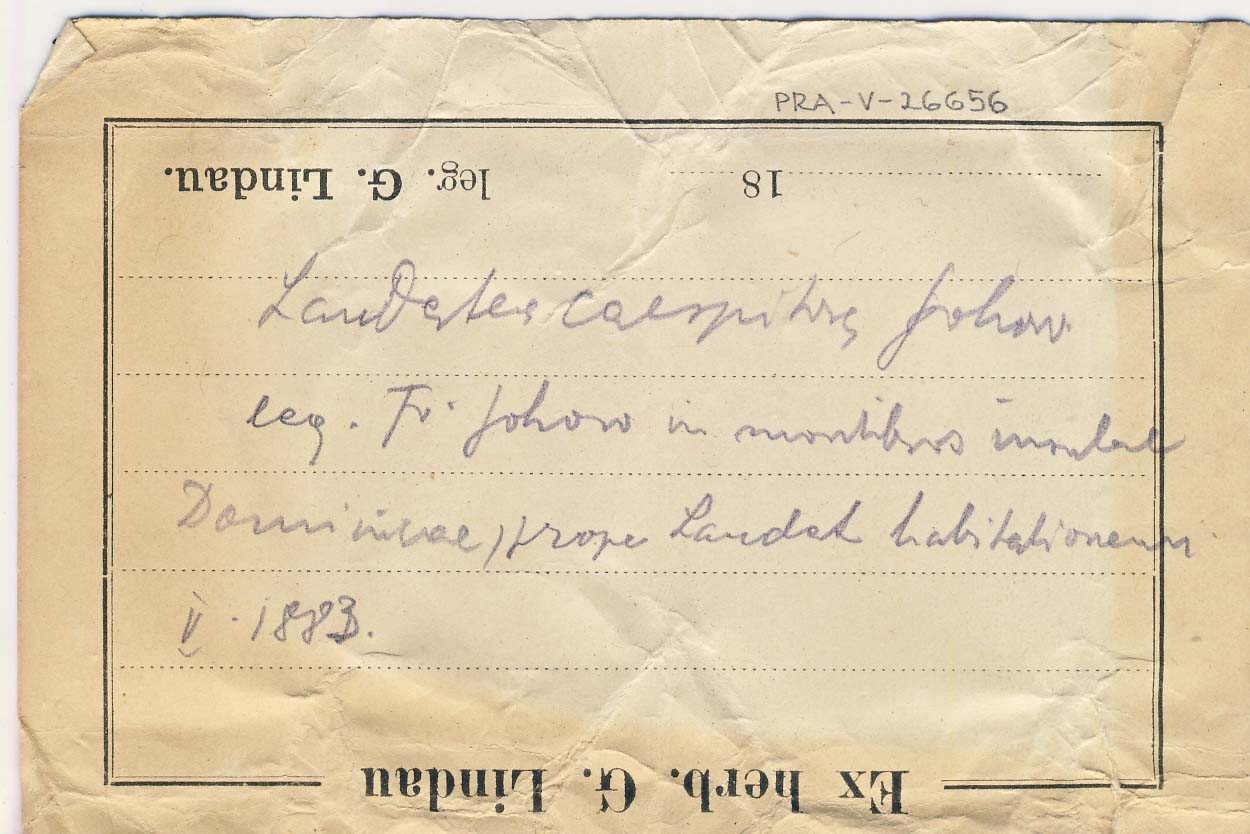 PRA-V-26656
leg. G. Lindau.
18
Laudatea caespitosa Johow
leg. Fr. Johow in montibus insulae
Dominicae, prope Laudat habitationem
V. 1883.
Ex herb. G. Lindau